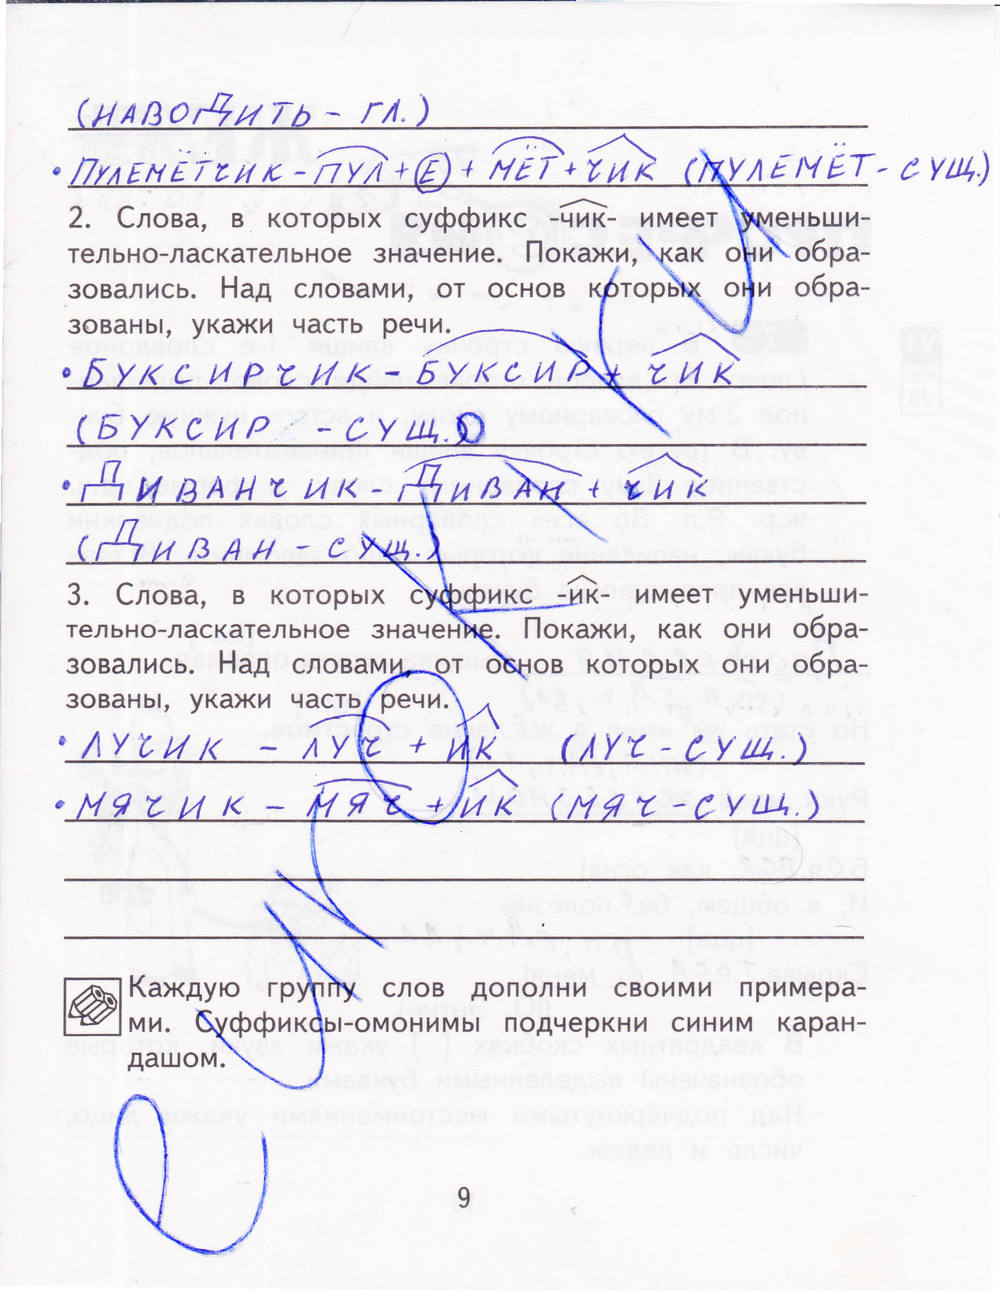 (НАВОДИТЬ - ГЛ.)
• ПУЛЕМЁТЧИК - ПУЛ + Е + МЁТ + ЧИК (ПУЛЕМЁТ - СУЩ.)
2. Слова, в которых суффикс -чик- имеет уменьши-
тельно-ласкательное значение. Покажи, как они обра-
зовались. Над словами, от основ которых они обра-
зованы, укажи часть речи.
• БУКСИРЧИК - БУКСИР + ЧИК
(БУКСИР - СУЩ.)
• ДИВАНЧИК - ДИВАН + ЧИК
(ДИВАН - СУЩ.)
3. Слова, в которых суффикс -ик- имеет уменьши-
тельно-ласкательное значение. Покажи, как они обра-
зовались. Над словами, от основ которых они обра-
зованы, укажи часть речи.
• ЛУЧИК - ЛУЧ + ИК (ЛУЧ - СУЩ.)
• МЯЧИК - МЯЧ + ИК (МЯЧ - СУЩ.)
Каждую группу слов дополни своими примера-
ми. Суффиксы-омонимы подчеркни синим каран-
дашом.
9